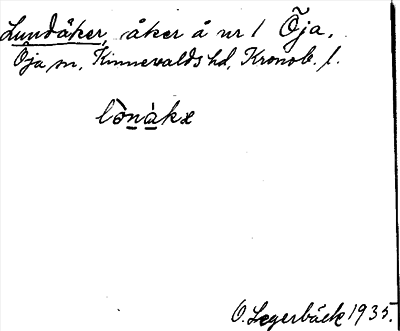 Lundåker, åker å nr 1 Öja.
Öja sn, Kinnevalds hd, Kronob. l.
O. Legerbäck 1935.